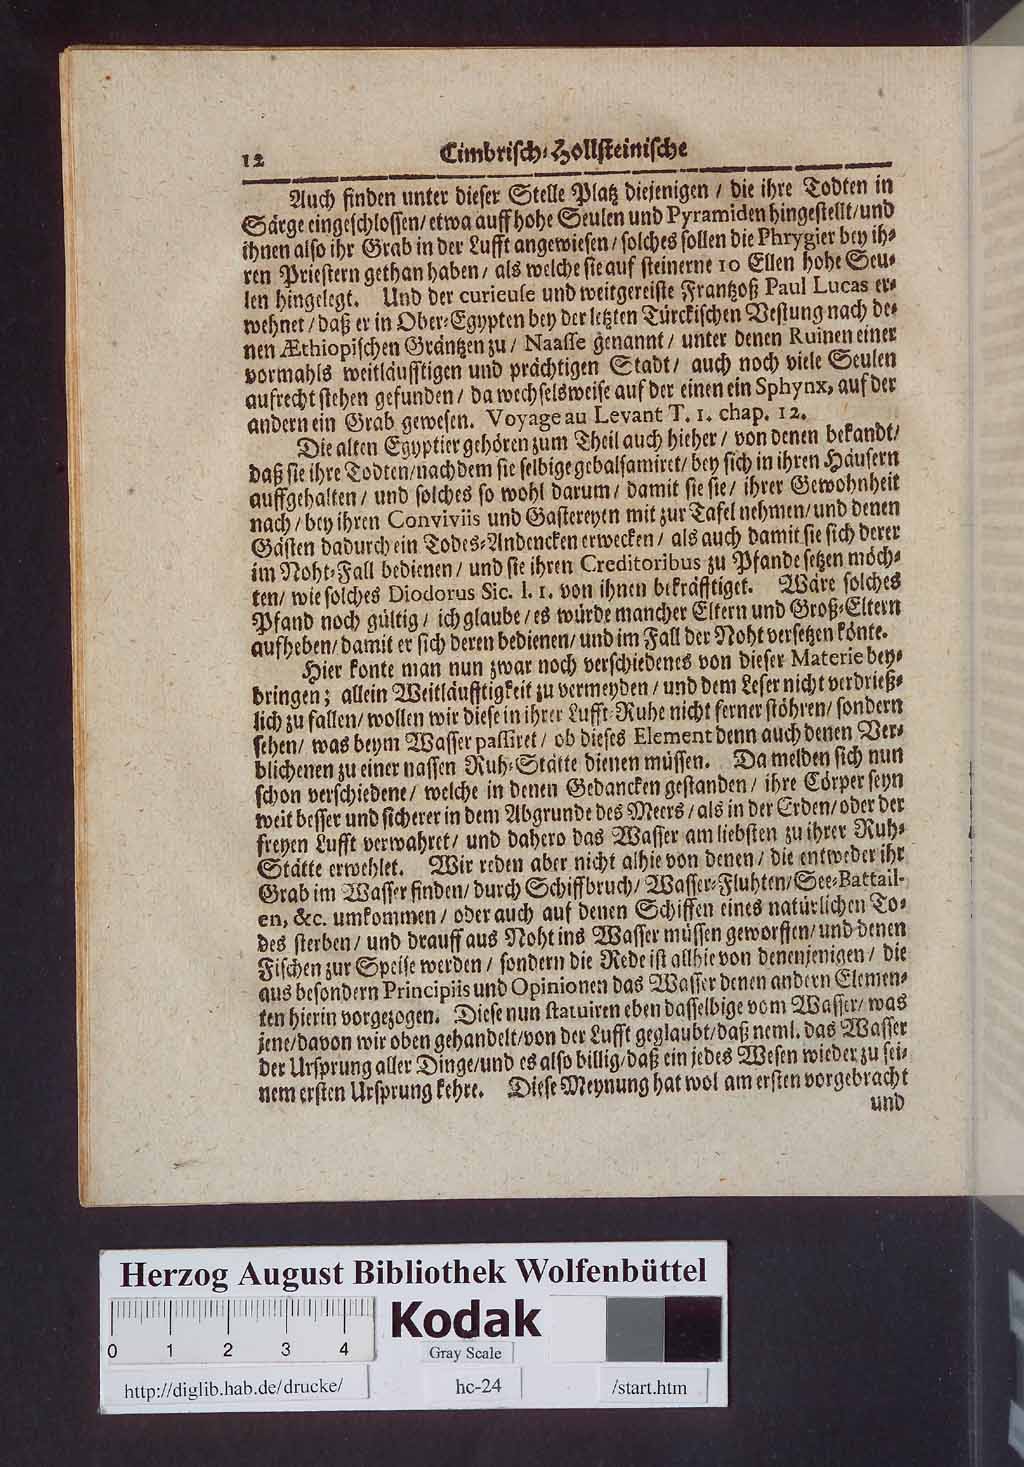 12 Cimbrisch-Hollsteinische
Auch finden unter dieser Stelle Platz diejenigen / die ihre Todten in
Särge eingeschlossen/ etwa auff hohe Seulen und Pyramiden hingestellt/ und
ihnen also ihr Grab in der Lufft angewiesen/ solches sollen die Phrygier bey ih-
ren Priestern gethan haben/ als welche sie auf steinerne 10 Ellen hohe Seu-
len hingelegt. Und der curieuse und weitgereiste Frantzoß Paul Lucas er-
wehnet/ daß er in Ober-Egypten bey der letzten Türckischen Vestung nach de-
nen Æthiopischen Gräntzen zu/ Naasse genannt/ unter denen Ruinen einer
vormahls weitläufftigen und prächtigen Stadt/ auch noch viele Seulen
aufrecht stehen gefunden/ da wechselsweise auf der einen ein Sphynx, auf der
andern ein Grab gewesen. Voyage au Levant T. 1. chap. 12.
Die alten Egyptier gehören zum Theil auch hieher/ von denen bekandt/
daß sie ihre Todten/ nachdem sie selbige gebalsamiret/ bey sich in ihren Häusern
auffgehalten/ und solches so wohl darum/ damit sie sie/ ihrer Gewohnheit
nach/ bey ihren Conviviis und Gastereyen mit zur Tafel nehmen/ und denen
Gästen dadurch ein Todes-Andencken erwecken/ als auch damit sie sich derer
im Noht-Fall bedienen/ und sie ihren Creditoribus zu Pfande setzen möch-
ten/ wie solches Diodorus Sic. l. 1. von ihnen bekräfftiget. Wäre solches
Pfand noch gültig/ ich glaube/ es würde mancher Eltern und Groß-Eltern
aufheben/ damit er sich deren bedienen/ und im Fall der Noht versetzen könte.
Hier konte man nun zwar noch verschiedenes von dieser Materie bey-
bringen; allein Weitläufftigkeit zu vermeyden/ und dem Leser nicht verdrieß-
lich zu fallen/ wollen wir diese in ihrer Lufft-Ruhe nicht ferner stöhren/ sondern
sehen/ was beym Wasser passiret/ ob dieses Element denn auch denen Ver-
blichenen zu einer nassen Ruh-Stätte dienen müssen. Da melden sich nun
schon verschiedene/ welche in denen Gedancken gestanden/ ihre Cörper seyn
weit besser und sicherer in dem Abgrunde des Meers/ als in der Erden/ oder der
freyen Lufft verwahret/ und dahero das Wasser am liebsten zu ihrer Ruh-
Stätte erwehlet. Wir reden aber nicht alhie von denen/ die entweder ihr
Grab im Wasser finden/ durch Schiffbruch/ Wasser-Fluhten/ See-Battail-
en, &c. umkommen/ oder auch auf denen Schiffen eines natürlichen To-
des sterben/ und drauff aus Noht ins Wasser müssen geworffen/ und denen
Fischen zur Speise werden/ sondern die Rede ist allhie von denenjenigen/ die
aus besondern Principiis und Opinionen das Wasser denen andern Elemen-
ten hierin vorgezogen. Diese nun statuiren eben dasselbige vom Wasser/ was
jene/ davon wir oben gehandelt/ von der Lufft geglaubt/ daß neml. das Wasser
der Ursprung aller Dinge/ und es also billig/ daß ein jedes Wesen wieder zu sei-
nem ersten Ursprung kehre. Diese Meynung hat wol am ersten vorgebracht
und
Herzog August Bibliothek Wolfenbüttel
Kodak
0 1 2 3 4
Gray Scale
http://diglib.hab.de/drucke/ hc-24 /start.htm